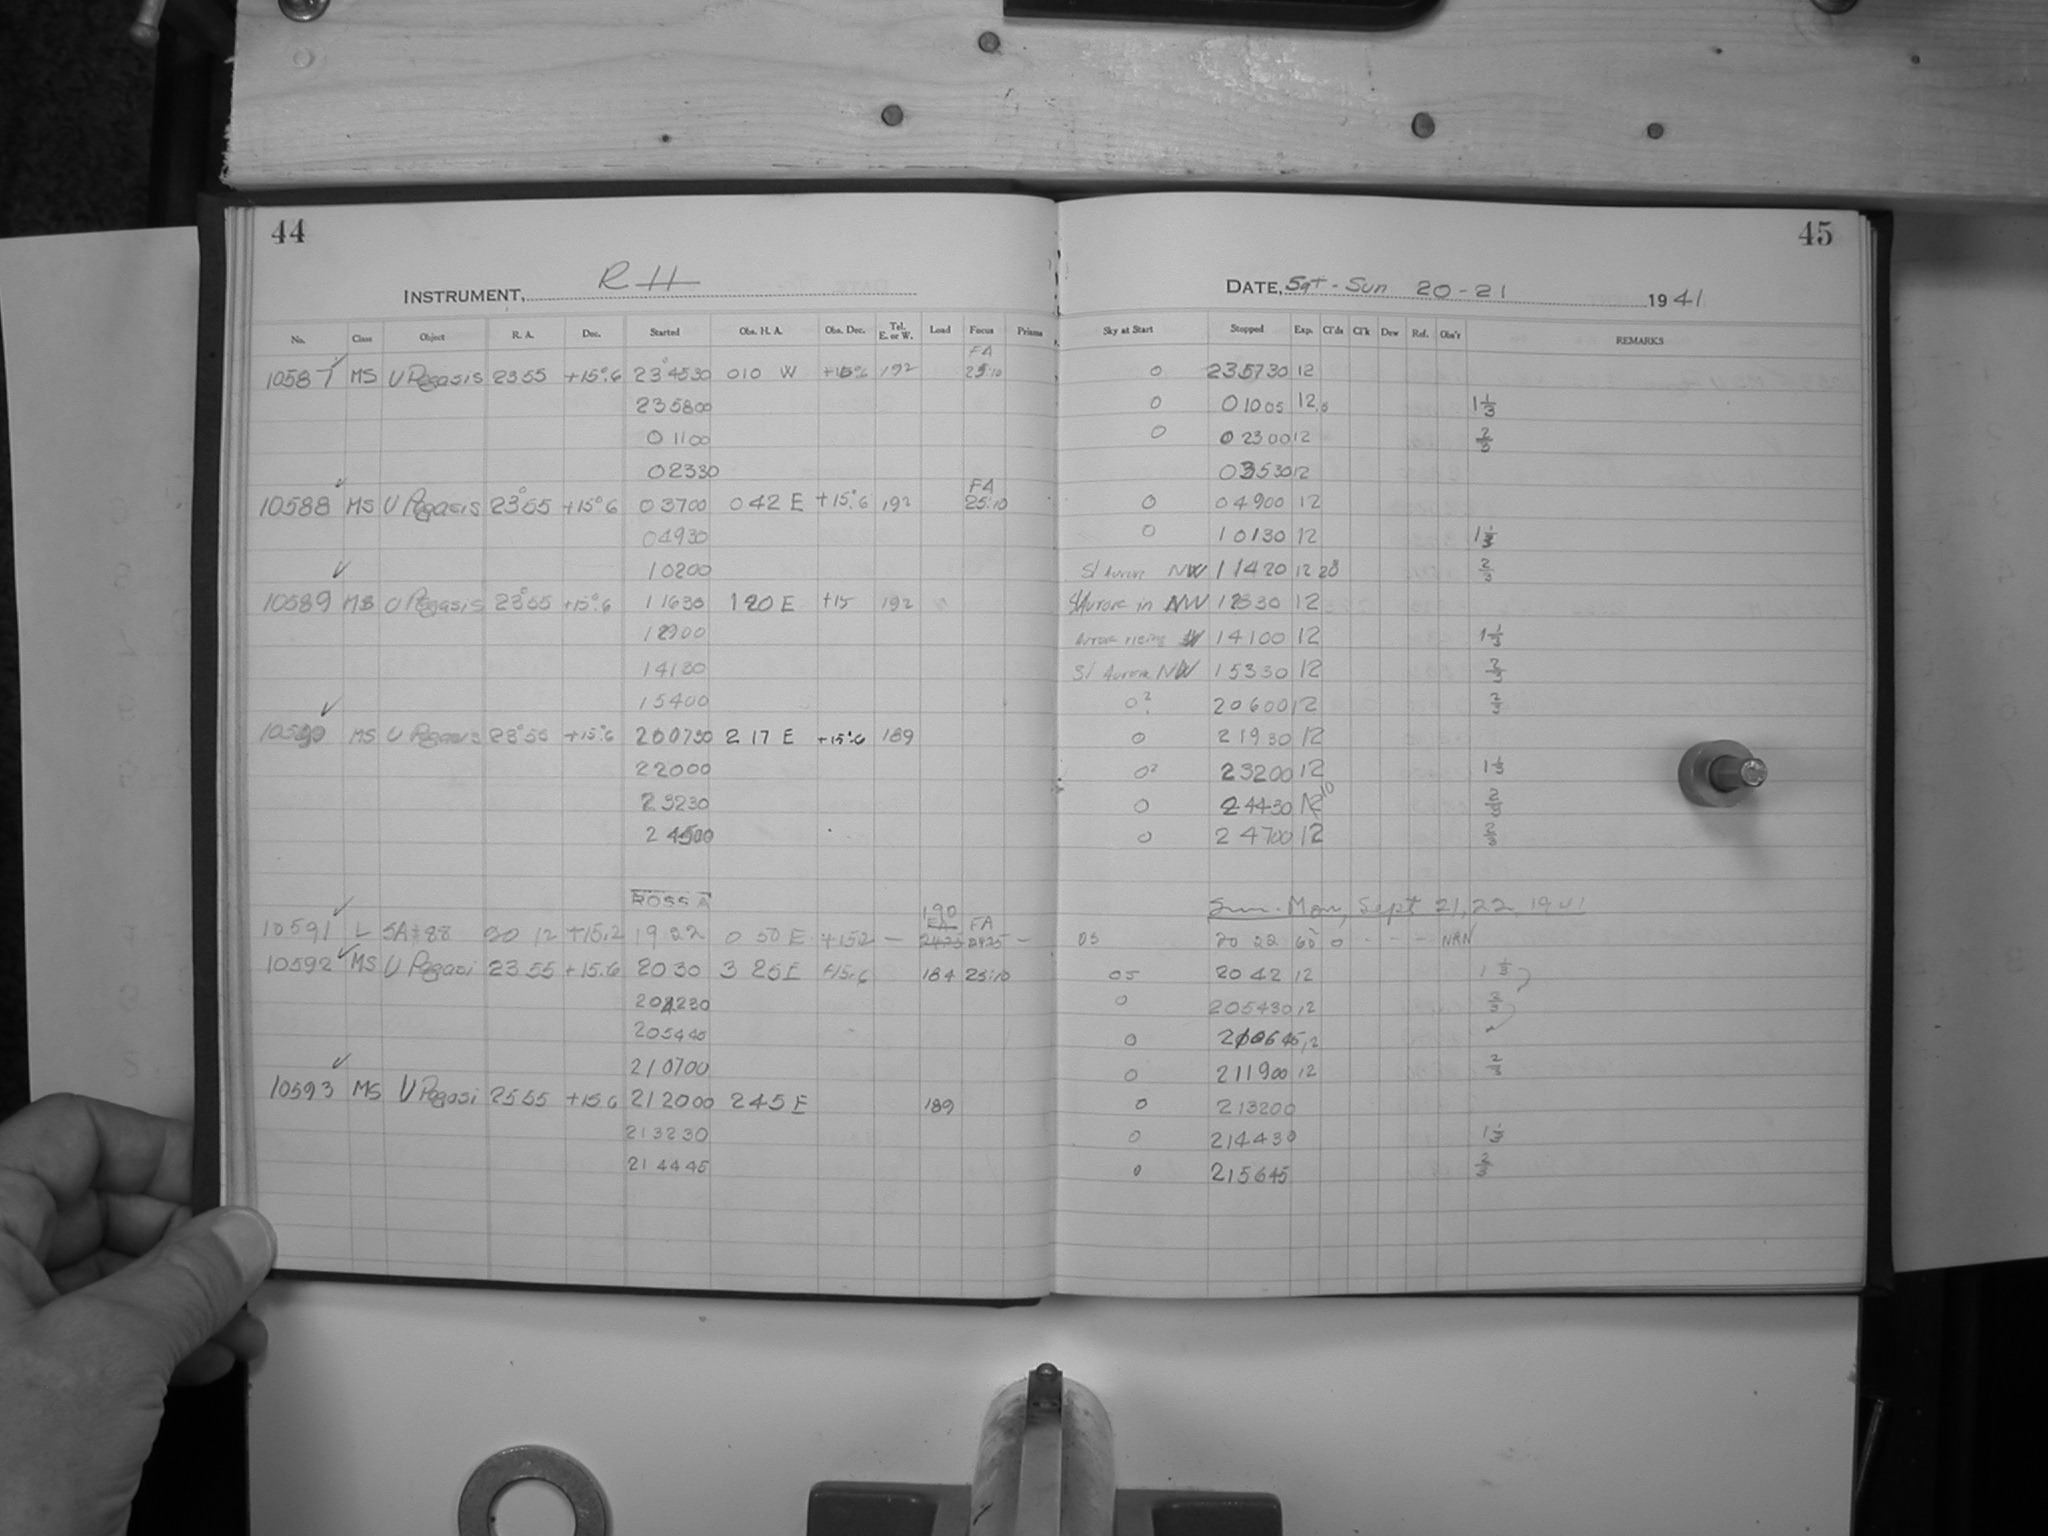 44
INSTRUMENT, RH
No. Class Object R. A. Dec. Started Obs. H. A. Obs. Dec. Tel. E. or W. Load Focus Prisms
FA
10587 MS U Pegasis 2355 +15°.6 234530 010 W +15°.6 192 25:10
235800
0 1100
02330
FA
10588 MS U Pegasis 23°55 +15°6 03700 042 E +15°.6 192 25:10
04930
10200
10589 MS U Pegasis 23°55 +15°.6 11630 120 E +15 192 "
12900
14130
15400
10590 MS U Pegasis 23°55 +15°.6 200730 2 17 E +15°.6 189
22000
23230
24500
ROSS A
190
FA FA
10591 L SA 88 20 12 +15.2 1922 0 50 E +152 — 2425 —
10592 MS U Pegasi 2355 +15.6 2030 3 25 E +15.6 184 25:10
204230
205445
210700
10593 MS U Pegasi 2355 +15.6 212000 245 E 189
213230
214445
45
DATE, Sat - Sun 20-21 1941
Sky at Start Stopped Exp. Cl'ds Cl'k Dew Ref. Obs'r REMARKS
0 235730 12
0 01005 12.5 1 1/3
0 02300 12 2/3
03530 12
0 04900 12
0 10130 12 1 1/3
Sl Aurora NW 11420 12 20 2/3
Sl Aurora in NW 12830 12
Aurora rising 14100 12 1 1/3
Sl Aurora NW 15330 12 2/3
0² 20600 12 2/3
0 21930 12
0² 23200 12 1 1/3
0 24430 12 2/3
0 24700 12 2/3
Sun - Mon, Sept 21, 22, 1941
05 20 22 60 0 - - - NRN
05 2042 12 1 1/3
0 205430 12 2/3
0 210645 12
0 211900 12 2/3
0 213200
0 214430 1 1/3
0 215645 2/3